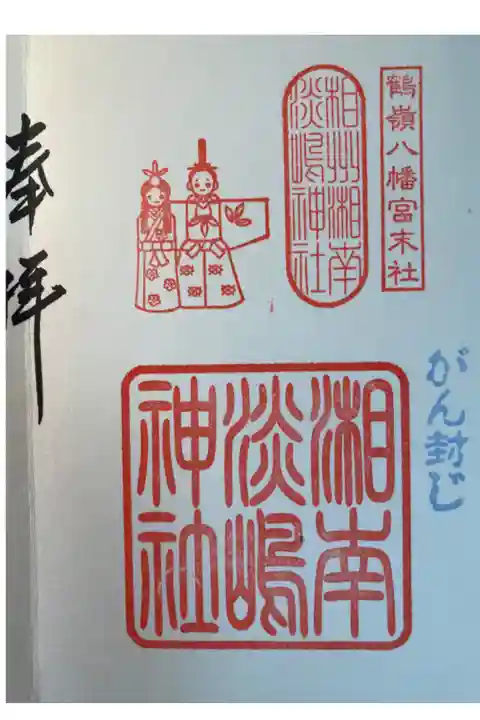 鶴嶺八幡宮末社
相州湘南
淡嶋神社
がん封じ
湘南
淡嶋
神社
奉拝